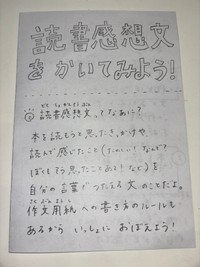 読書感想文
をかいてみよう!
どくしょかんそうぶん
◎ 読書感想文、ってなあに?
本を読もうと思ったきっかけや
読んで感じたこと(たのしい!など?
ぼくもそう思ったことあい!など)を
自分の言葉でつたえる文のことだよ。
さくぶんようし
作文用紙への書き方のルールも
あるから いっしょに おぼえよう!